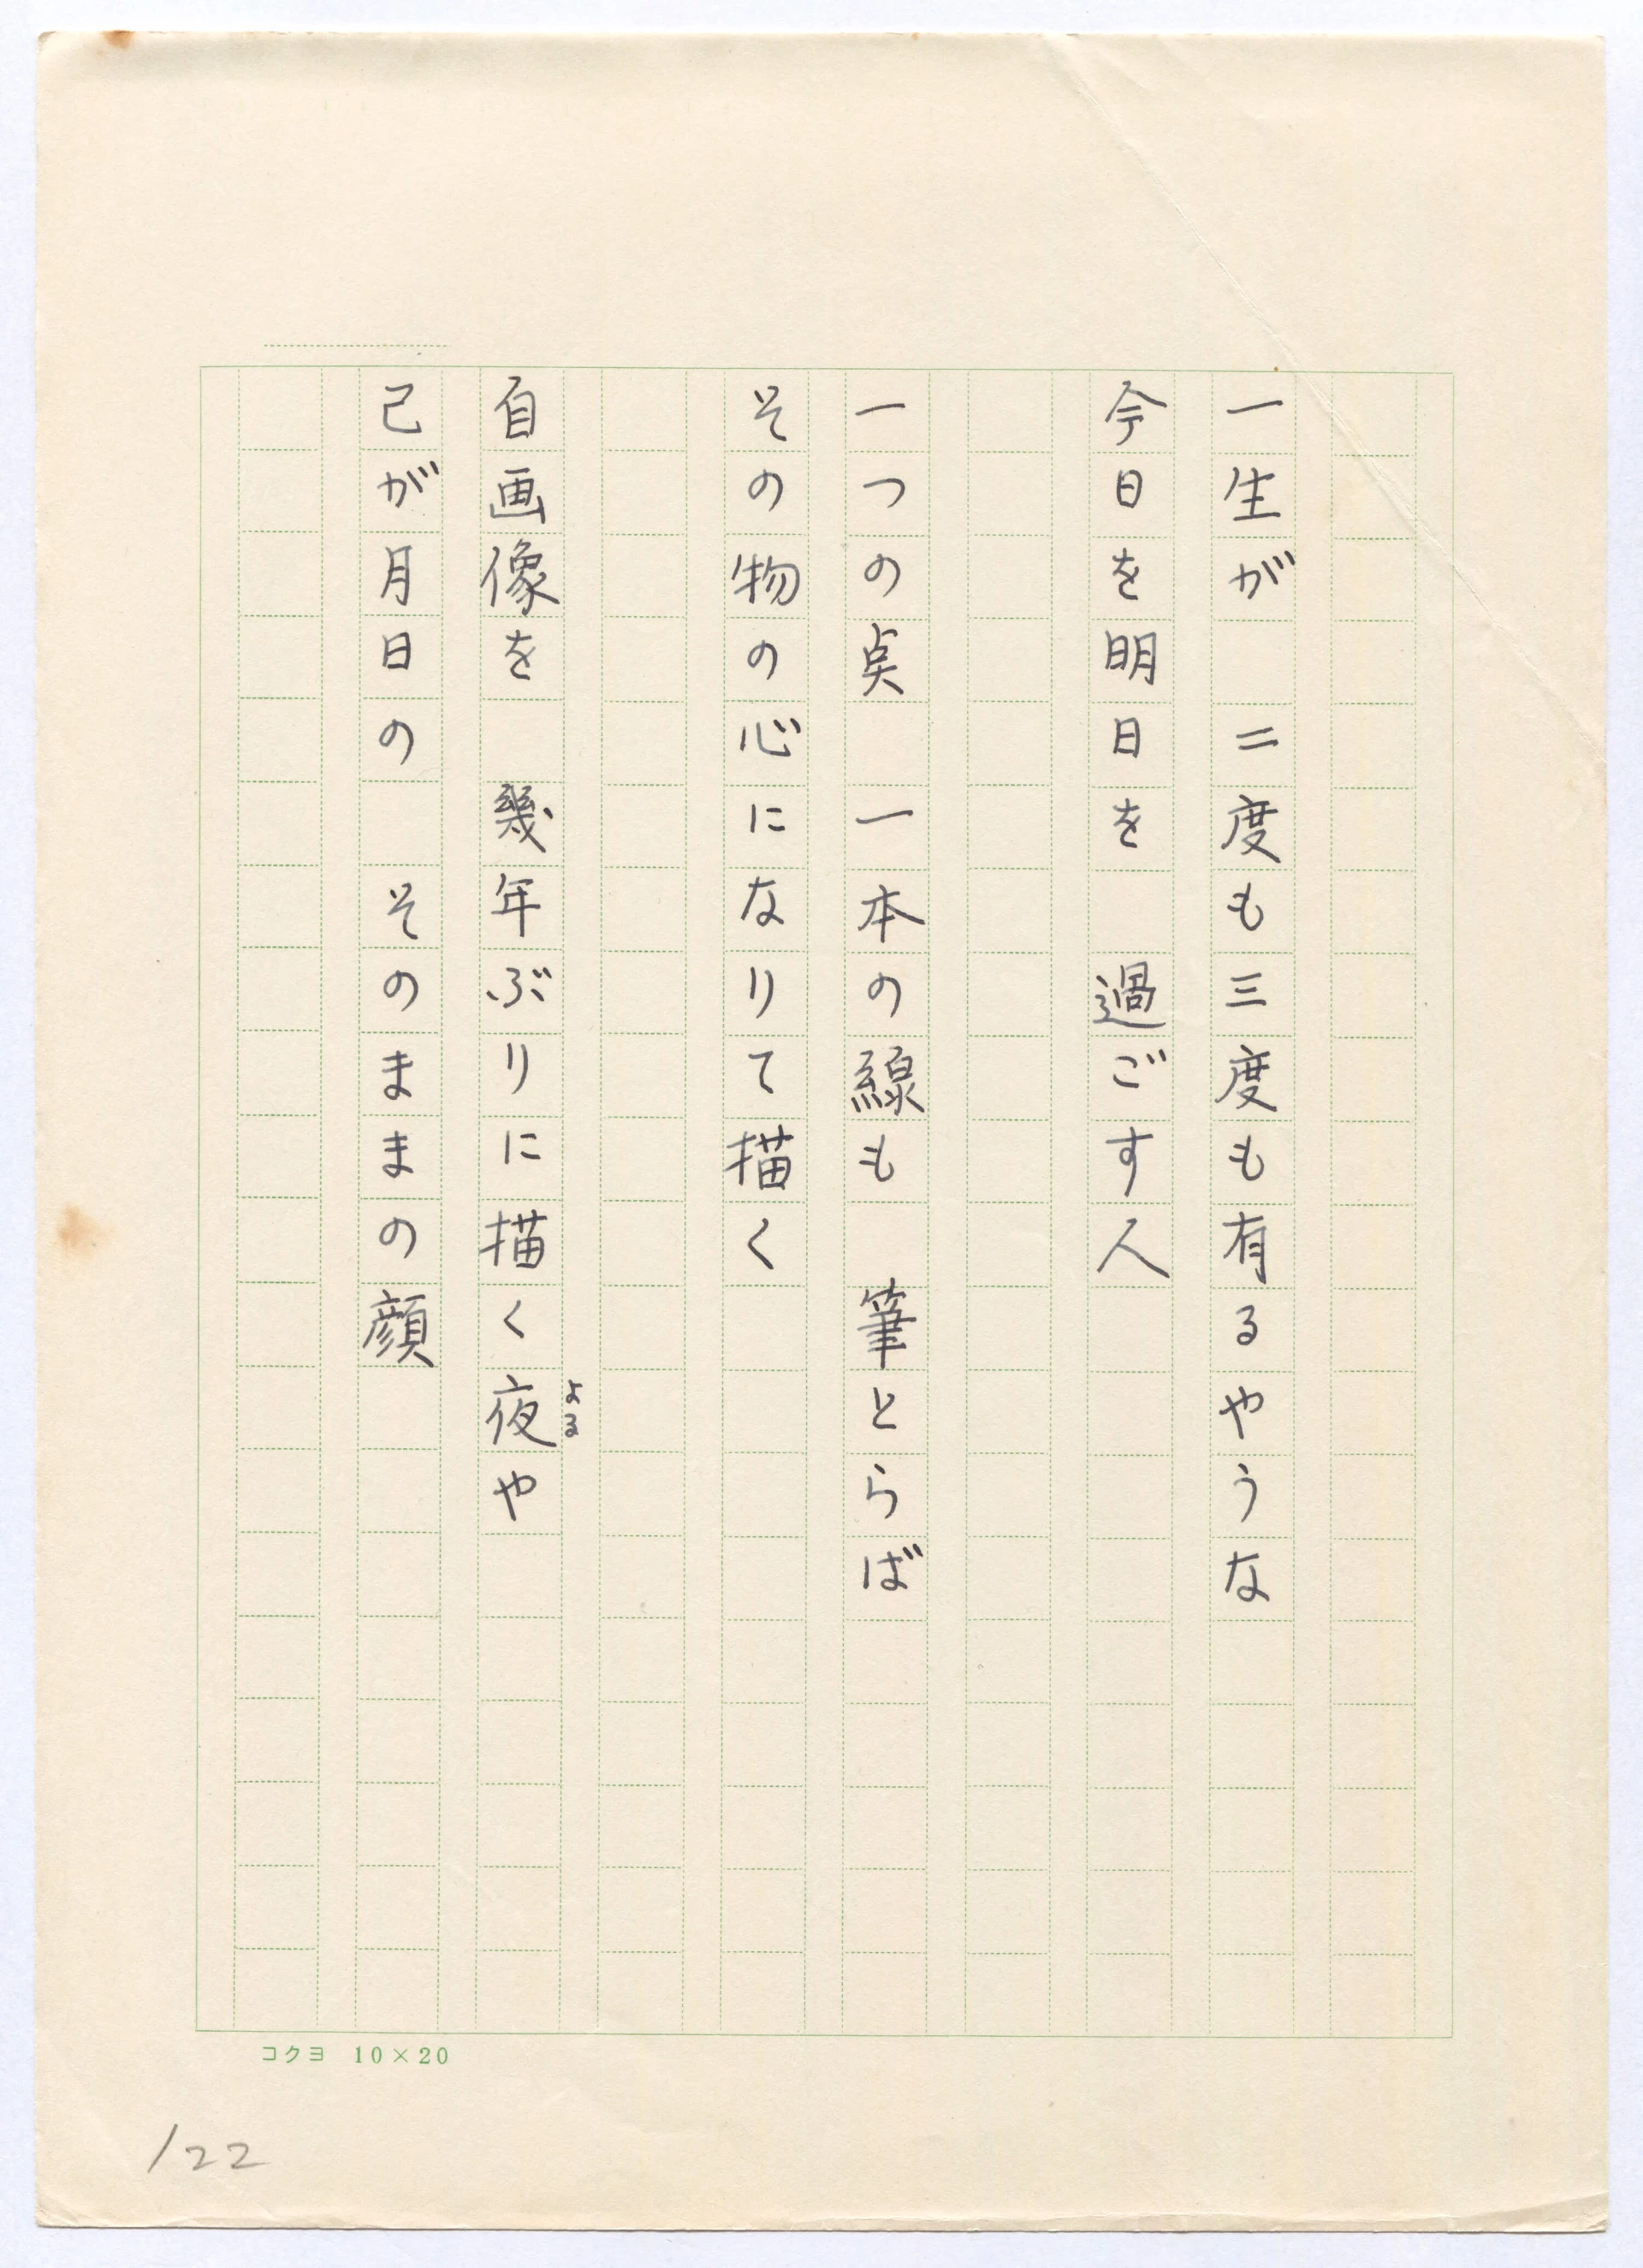 一生が　二度も三度も有るやうな
今日を明日を　過ごす人
一つの点　一本の線も　筆とらば
その物の心になりて描く
自画像を　幾年ぶりに描く夜や
よる
己が月日の　そのままの顔
コクヨ 10×20
122